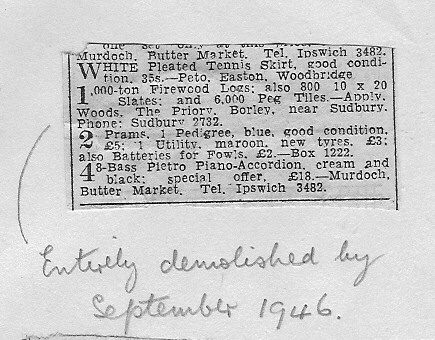 one set only at this
Murdoch, Butter Market. Tel. Ipswich 3482.
WHITE Pleated Tennis Skirt, good condi-
tion, 35s.—Peto, Easton, Woodbridge
1,000-ton Firewood Logs; also 800 10 x 20
Slates; and 6,000 Peg Tiles.—Apply,
Woods, The Priory, Borley, near Sudbury.
Phone: Sudbury 2732.
2 Prams, 1 Pedigree, blue, good condition,
£5; 1 Utility, maroon, new tyres, £3;
also Batteries for Fowls, £2.—Box 1222.
48-Bass Pietro Piano-Accordion, cream and
black; special offer, £18.—Murdoch,
Butter Market. Tel. Ipswich 3482.
Entirely demolished by
September 1946.